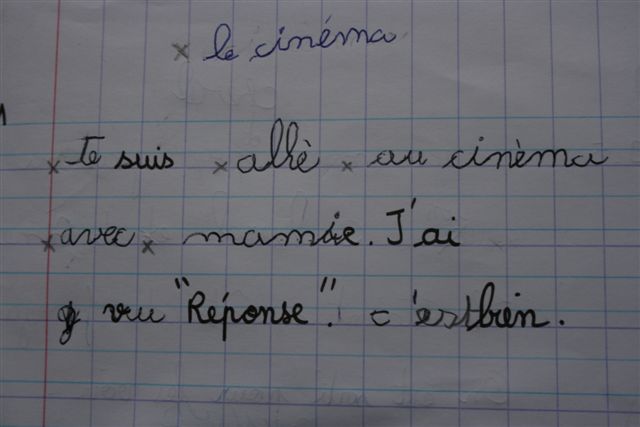 le cinéma
Je suis allè au cinèma
avec mamie. J'ai
vu "Réponse". c'est bien.